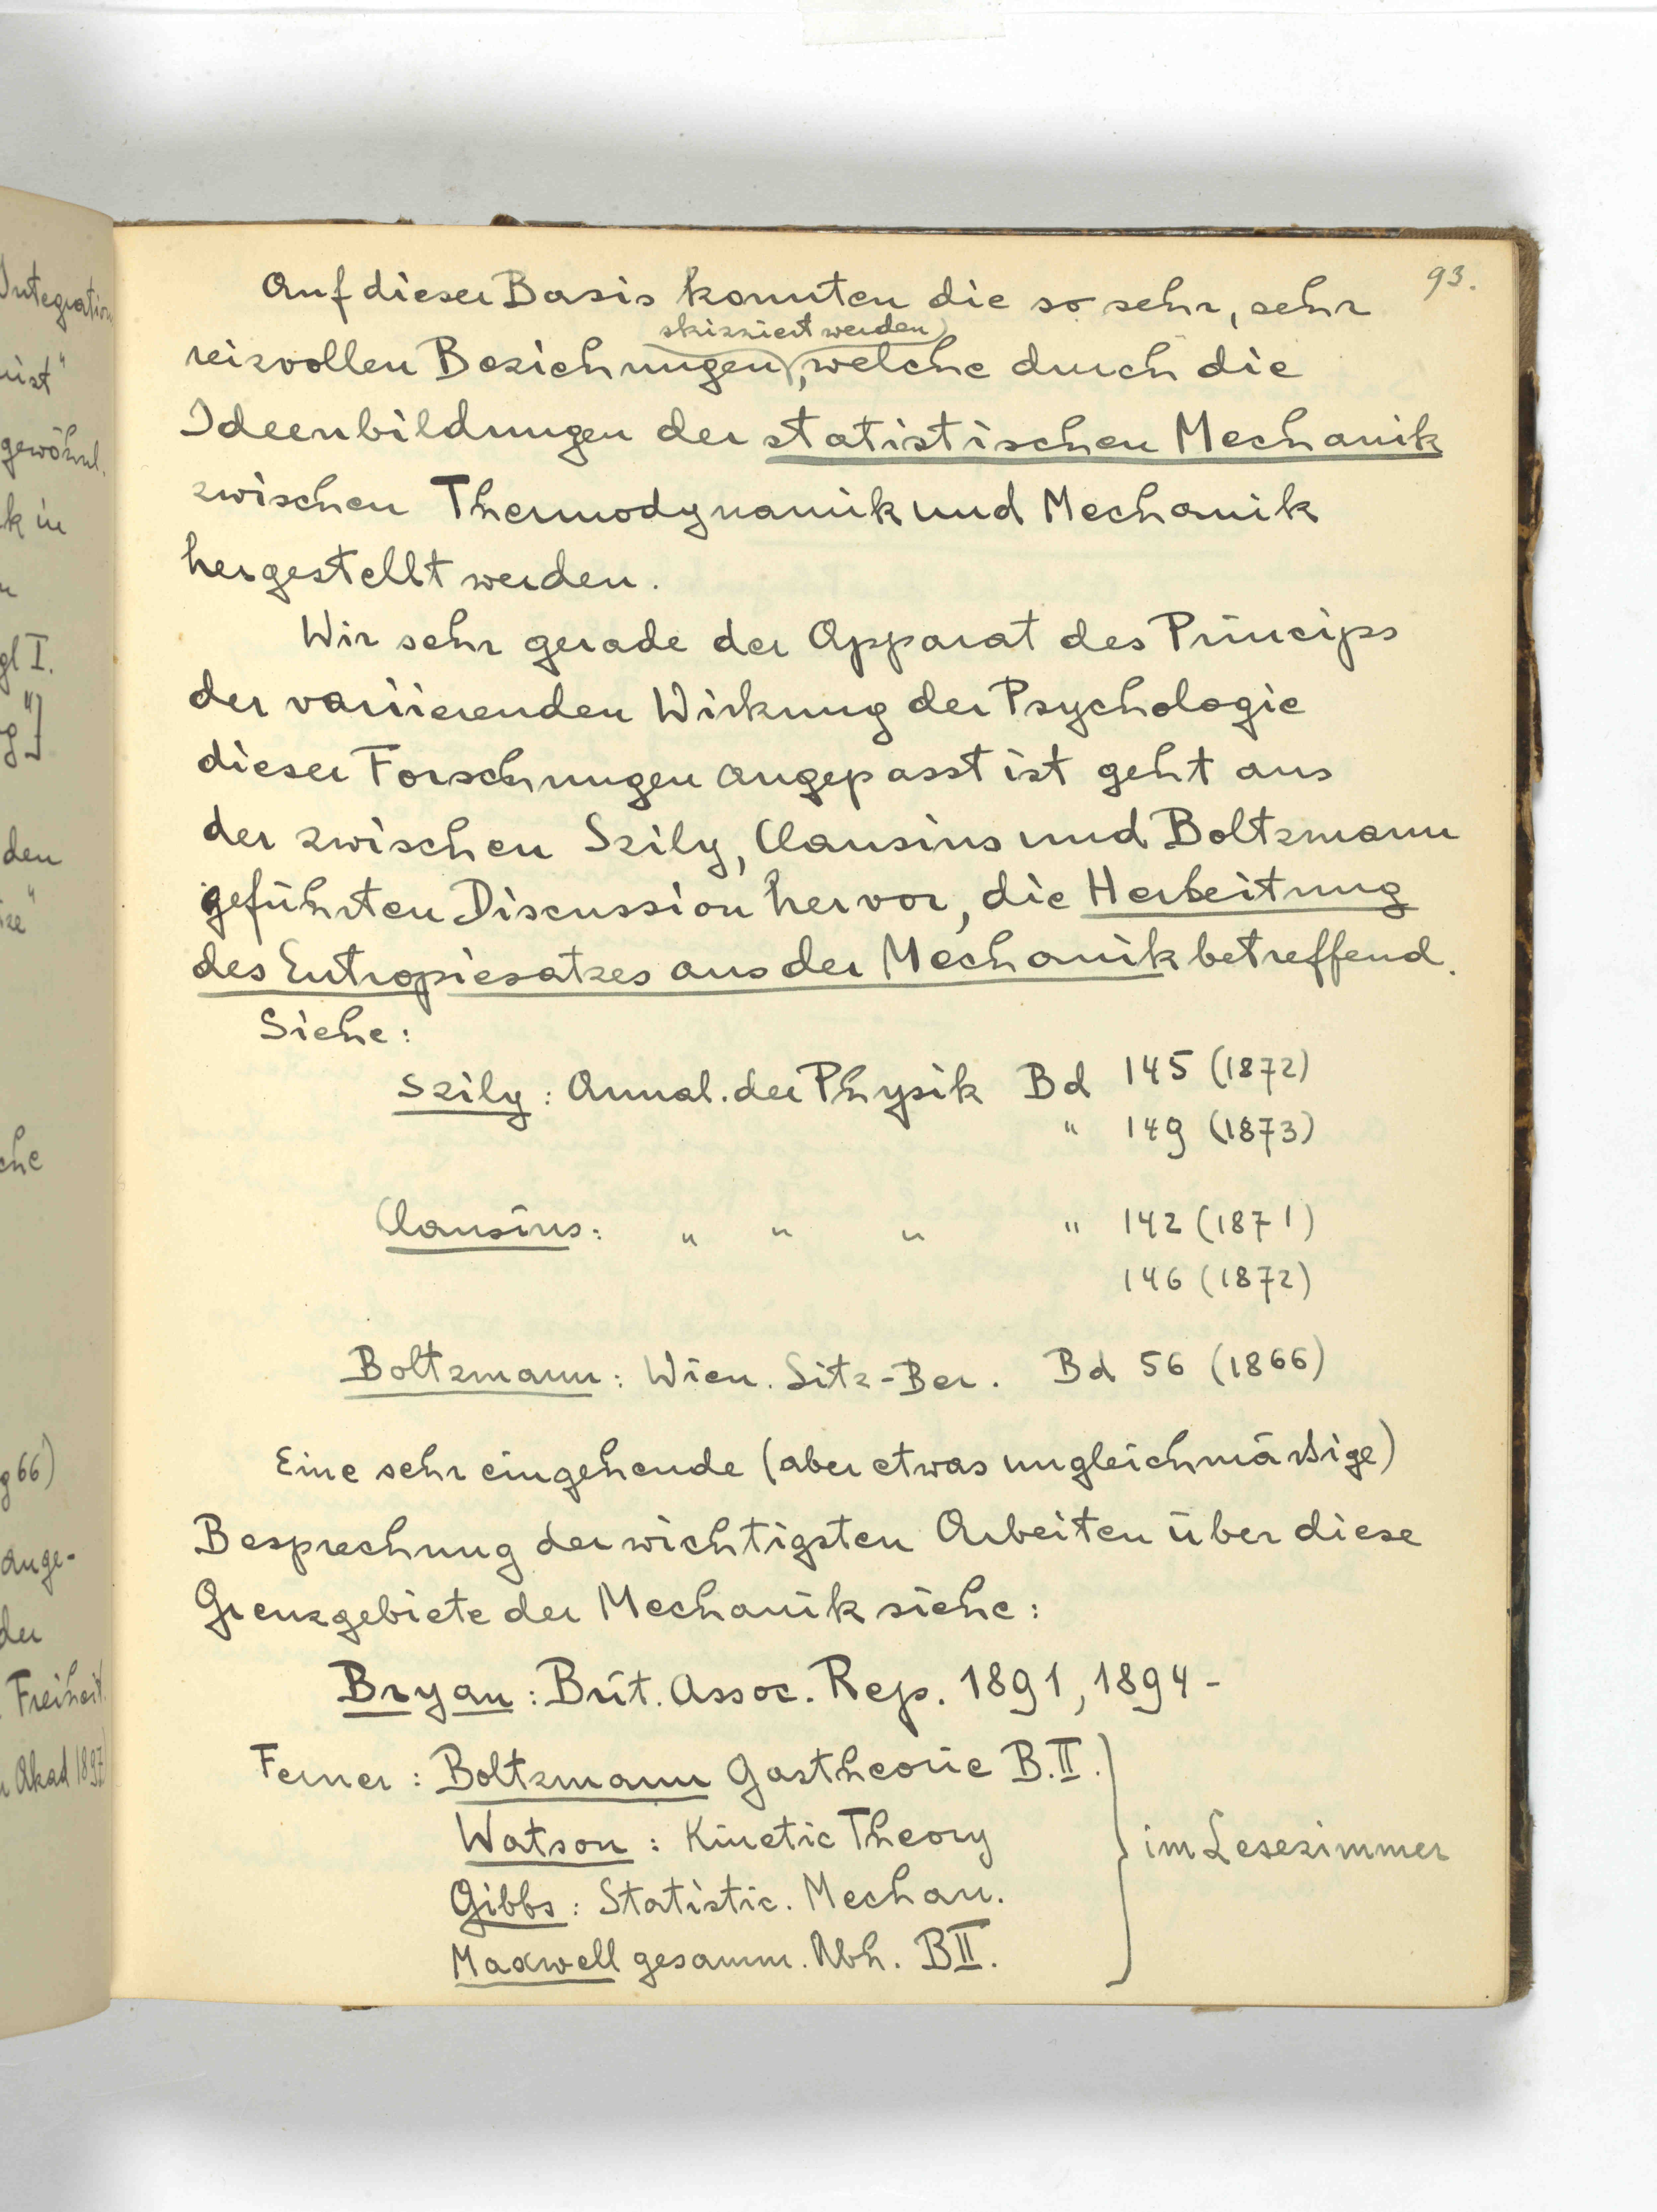 93.
Auf dieser Basis konnten die so sehr, sehr
skizziert werden
reizvollen Beziehnungen, welche durch die
Ideenbildungen der statistischen Mechanik
zwischen Thermodynamik und Mechanik
hergestellt werden.
Wir sehr gerade der Apparat des Princips
der variierenden Wirkung der Psychologie
dieser Forschnungen angepasst ist geht aus
der zwischen Szily, Clausius und Boltzmann
geführten Discussion hervor, die Herleitung
des Entropiesatzes aus der Mechanik betreffend.
Siehe:
Szily: Annal. der Physik Bd 145 (1872)
" 149 (1873)
Clausius: " " " " 142 (1871)
146 (1872)
Boltzmann: Wien. Sitz-Ber. Bd 56 (1866)
Eine sehr eingehende (aber etwas ungleichmäßige)
Besprechnung der wichtigsten Arbeiten über diese
Grenzgebiete der Mechanik siehe:
Bryan: Brit. Assoc. Rep. 1891, 1894-
Ferner: Boltzmann Gastheorie B. II.
Watson: Kinetic Theory
im Lesezimmer
Gibbs: Statistic. Mechan.
Maxwell gesamm. Abh. B II.
Integration
gewöhnl.
k in
gl I.
den
che
ange-
der
Freiheit.
Akad 1897